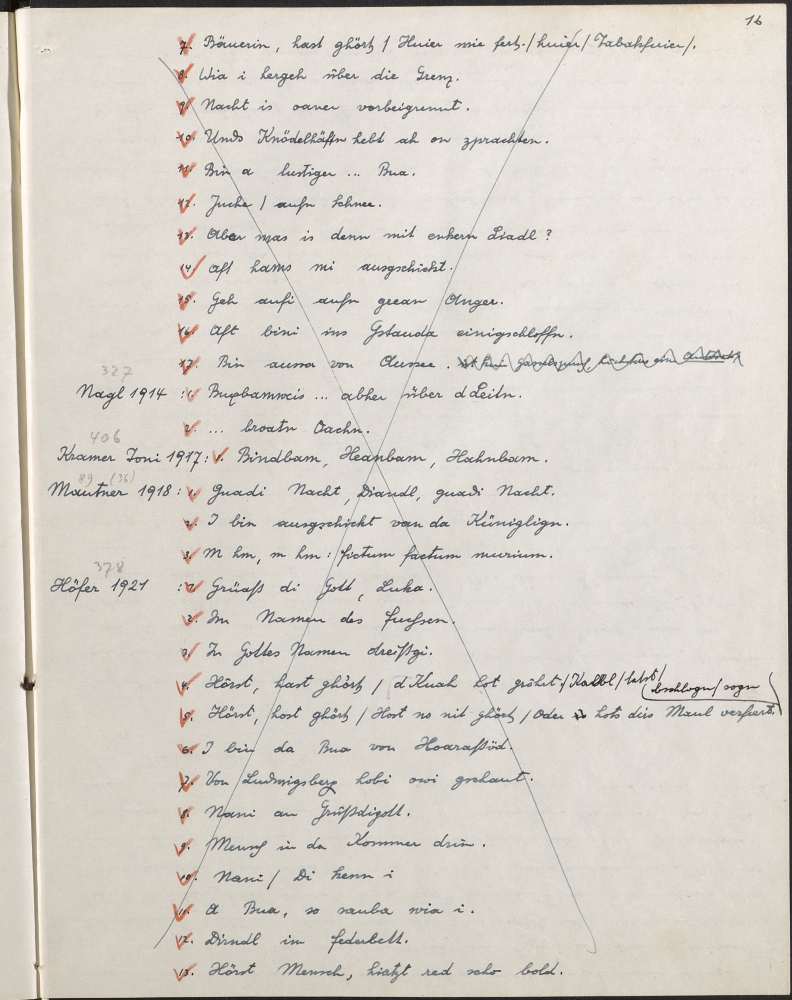 16
7. Bäuerin, hast ghört / Huier wie fert. / huier / Tabakfuier /.
8. Wia i hergeh über die Grenz.
9. Nacht is oaner vorbeigrennt.
10. Unds Knödelhäfn hebt ah on zprachten.
11. Bin a lustiger ... Bua.
12. Juche / aufn Schnee.
13. Aber was is denn mit enkern Liadl?
14. Aft hams mi ausgschickt.
15. Geh aufi aufn gecan Anger.
16. Aft bini ins Gstauda einigschloffn.
17. Bin aussa von Aussee.
327
Nagl 1914 : 1. Buxbamwcis ... abher über d Leitn.
2. ... broatn Oachn.
406
Kramer Toni 1917: 1. Bindbam, Heanbam, Hahnbam.
89 (36)
Mautner 1918 : 1. Guadi Nacht, Diandl, guadi Nacht.
2. I bin ausgschickt van da Küniglign.
3. M hm, m hm: / fictum factum murium.
378
Höfer 1921 : 1. Grüaß di Gott, Luka.
2. Im Namen des Fuchsen.
3. In Gottes Namen dreißgi.
4. Hörst, hast ghört / d'Kuah hot gröhrt / Kaibl / lebst / bschlogn / sogn
5. Hörst, host ghört / Host no nit ghört / Oder hots diis Maul verfiert.
6. I bin da Bua von Hoaraßöd.
7. Von Ludwigsberg hobi owi gschaut.
8. Nani an Grüßdigott.
9. Mensch in da Kommer drin.
10. Nani / Di kenn i
11. A Bua, so sauba wia i.
12. Dirndl im Federbett.
13. Hörst Mensch, hiatzt red scho bold.